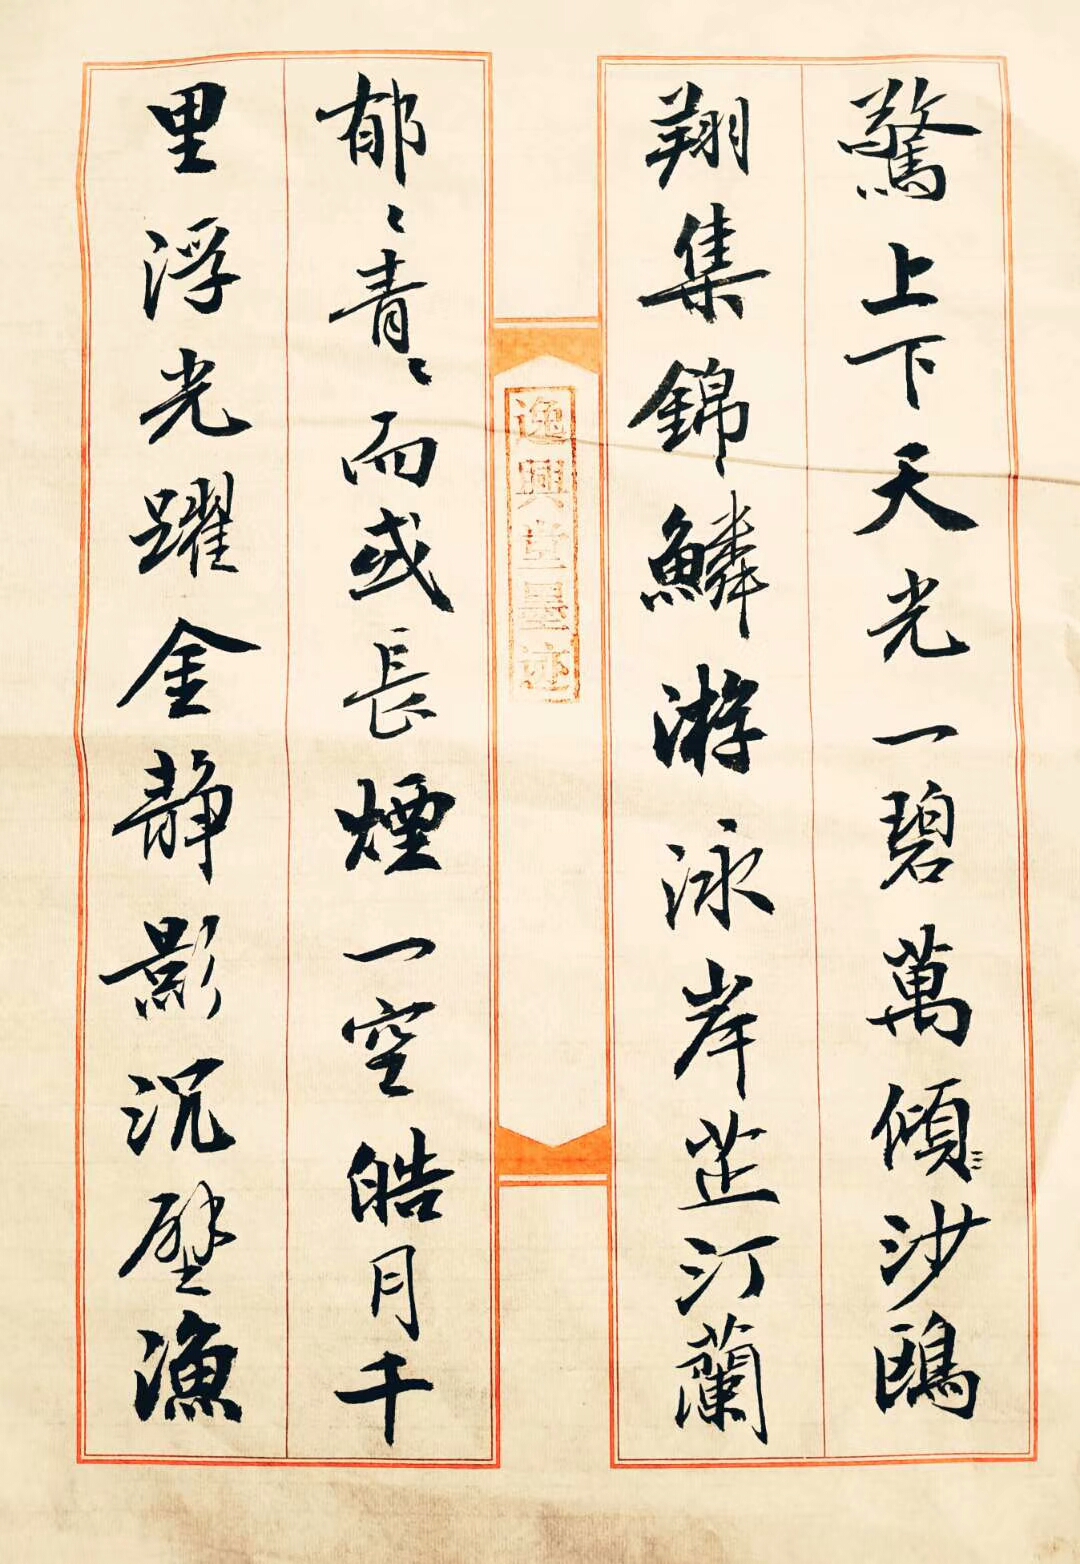 驚上下天光一碧萬傾沙鷗
翔集錦鱗游泳岸芷汀蘭
逸興堂墨迹
郁〻青〻而或長煙一空皓月千
里浮光躍金静影沉璧漁